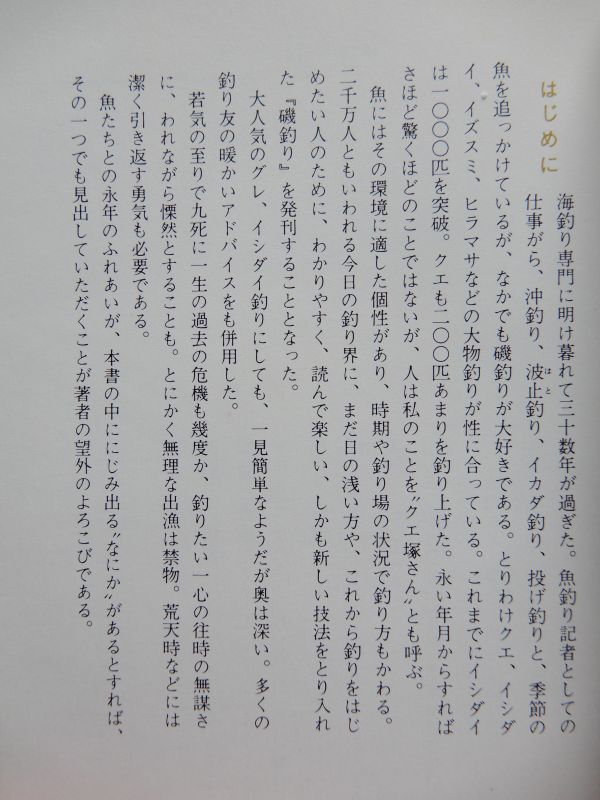 はじめに
海釣り専門に明け暮れて三十数年が過ぎた。魚釣り記者としての
仕事がら、沖釣り、波止釣り、イカダ釣り、投げ釣りと、季節の
はと
魚を追っかけているが、なかでも磯釣りが大好きである。とりわけクエ、イシダ
イ、イズスミ、ヒラマサなどの大物釣りが性に合っている。これまでにイシダイ
は一〇〇〇匹を突破。クエも二〇〇匹あまりを釣り上げた。永い年月からすれば
さほど驚くほどのことではないが、人は私のことを〝クエ塚さん〟とも呼ぶ。
魚にはその環境に適した個性があり、時期や釣り場の状況で釣り方もかわる。
二千万人ともいわれる今日の釣り界に、まだ日の浅い方や、これから釣りをはじ
めたい人のために、わかりやすく、読んで楽しい、しかも新しい技法をとり入れ
た『磯釣り』を発刊することとなった。
大人気のグレ、イシダイ釣りにしても、一見簡単なようだが奥は深い。多くの
釣り友の暖かいアドバイスをも併用した。
若気の至りで九死に一生の過去の危機も幾度か、釣りたい一心の往時の無謀さ
に、われながら慄然とすることも。とにかく無理な出漁は禁物。荒天時などには
潔く引き返す勇気も必要である。
魚たちとの永年のふれあいが、本書の中ににじみ出る〝なにか〟があるとすれば、
その一つでも見出していただくことが著者の望外のよろこびである。